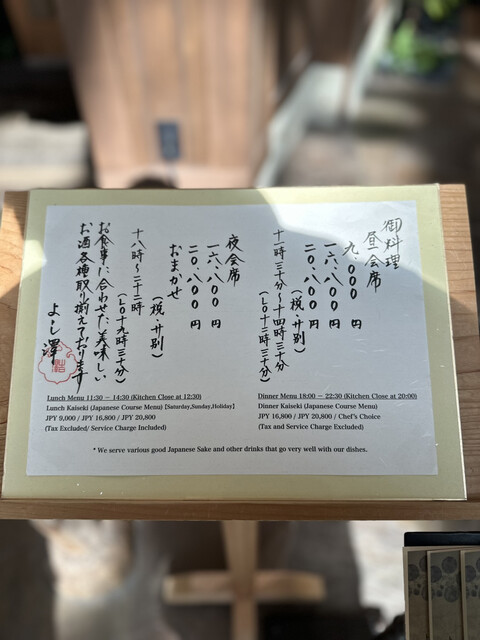 御料理
昼会席
九、〇〇〇 円
一六、八〇〇 円
二〇、八〇〇 円
(税・サ別)
十一時三十分〜十四時三十分
(LO十二時三十分)
夜会席
一六、八〇〇 円
二〇、八〇〇 円
おまかせ
(税・サ別)
十八時〜二十二時
(LO十九時三十分)
お食事に合わせた美味しい
お酒各種取り揃えております
よし澤
Lunch Menu 11:30 – 14:30 (Kitchen Close at 12:30)
Lunch Kaiseki (Japanese Course Menu) [Saturday,Sunday,Holiday]
JPY 9,000 / JPY 16,800 / JPY 20,800
(Tax Excluded/ Service Charge Included)
Dinner Menu 18:00 – 22:30 (Kitchen Close at 20:00)
Dinner Kaiseki (Japanese Course Menu)
JPY 16,800 / JPY 20,800 / Chef's Choice
(Tax and Service Charge Excluded)
* We serve various good Japanese Sake and other drinks that go very well with our dishes.